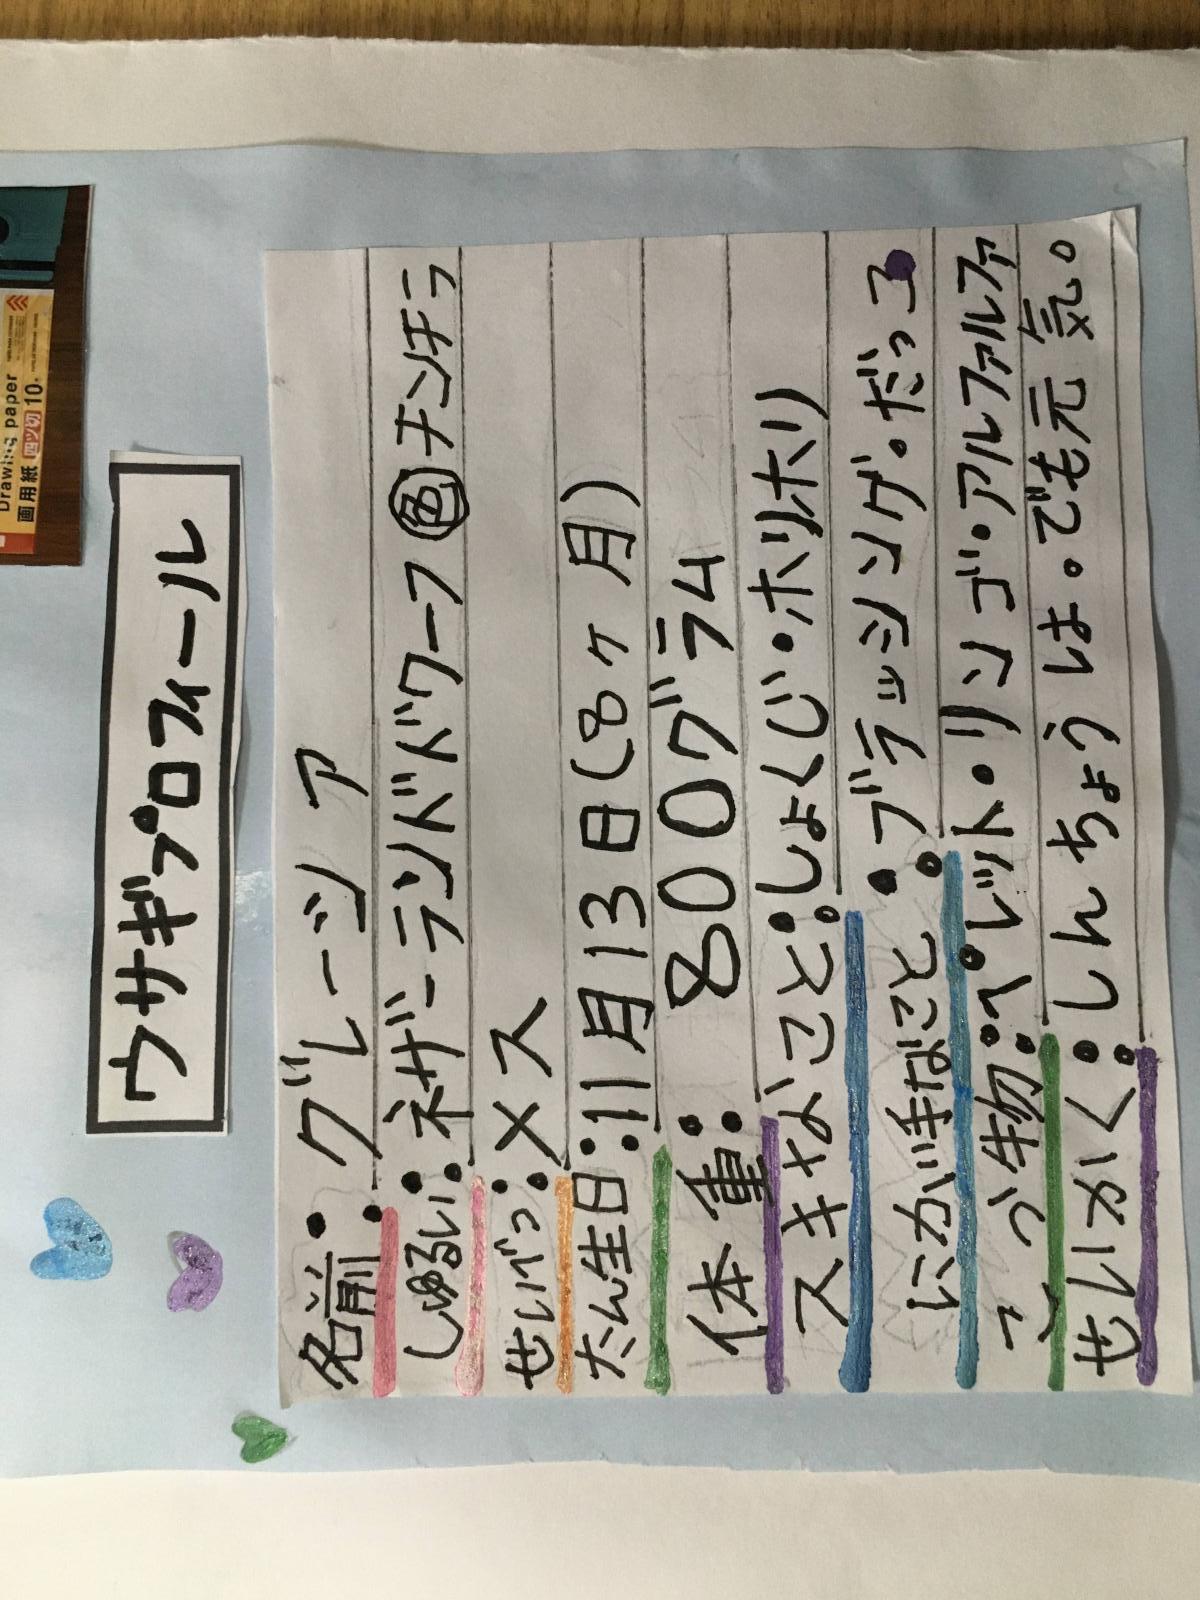 Drawing paper
画用紙 四ツ切 10
ウサギプロフィール
名前:グレーシア
しゅるい:ネザーランドドワーフ 色 チンチラ
せいべつ:メス
たん生日:11月13日(8ヶ月)
体重:800グラム
スキなこと:しょくじ・ホリホリ
にが手なこと:ブラッシング・だっこ
こう物:ペレット・リンゴ・アルファルファ
せいかく:しんちょうは。でも元気。